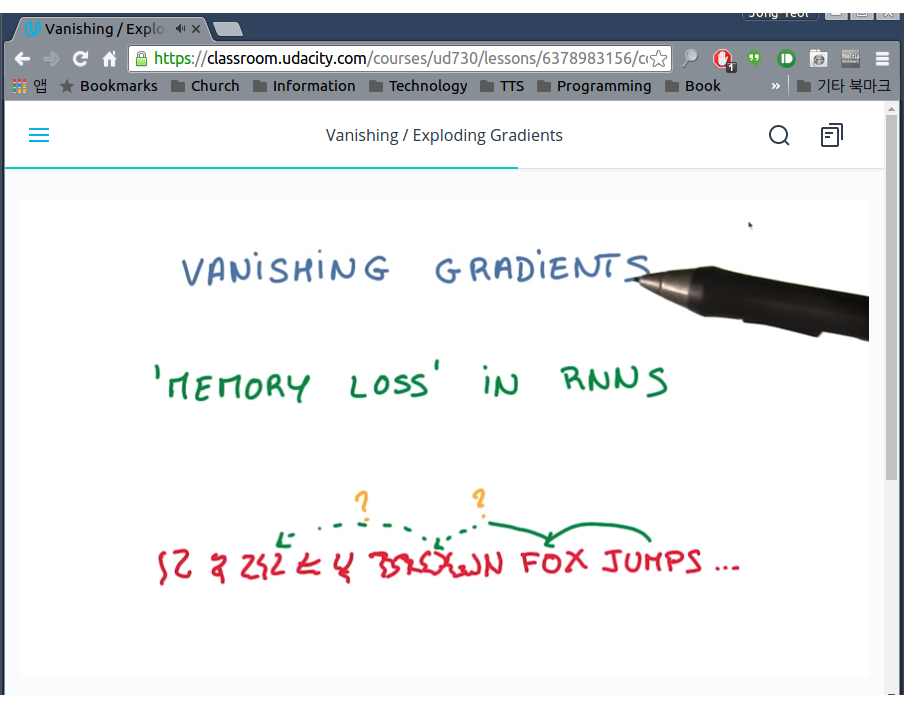 Vanishing / Explo
Jong Yeol
https://classroom.udacity.com/courses/ud730/lessons/6378983156/c
1
앱 Bookmarks Church Information Technology TTS Programming Book » 기타 북마크
Vanishing / Exploding Gradients
VANiSHiNG GRADiENTS
'MEMORY LOSS' iN RNNS
? ?
FOX JUMPS ...